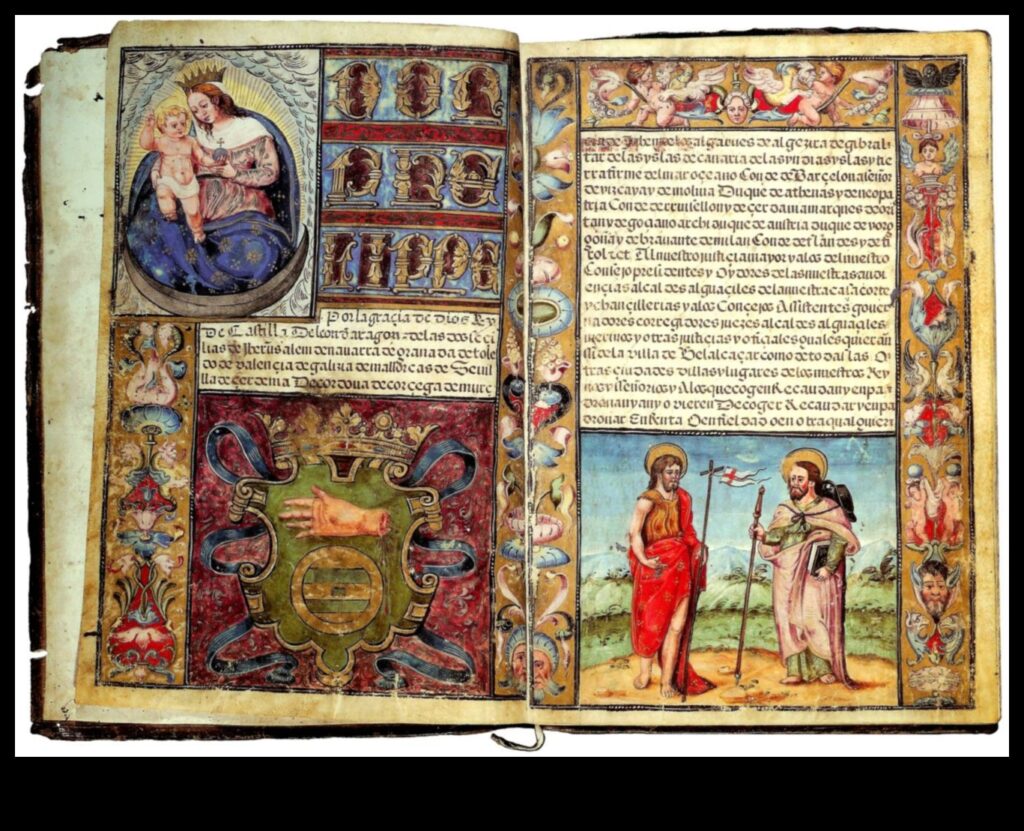 DON
PHE
LIPPE
Por la graçia de dios Rey
De Castilla De leon d aragon de las dos seçi
lias de Jherusalem de navarra de granada de tole
do de valençia de galizia de mallorcas de Sevi
lla de cerdenia De cordova de corçega de murç
de Jahen de los algarves de algezira de gibral
tar de las yslas de canaria de las yndias yslas y tie
rra firme del mar oçeano Conde de Barçelona señor
de vizcaya y de molina Duque de athenas y de neopa
tria Conde de rruisellon y de çerdania marques de ori
tan y de goçiano archiduque de austria Duque de vorg
goña y de bravante de milan Conde de flandes y de ti
rol etc Al nuestro justiçia mayor y a los del nuestro
Consejo presidentes y Oydores de las nuestras audi
ençias alcaldes alguaçiles de la nuestra casa corte
y chançillerias y a los Conçejos Assistentes gover
nadores corregidores juezes alcaldes alguaçiles
merinos y otras justiçias y ofiçiales quales quier
de la villa de Belalcaçar como de todas las O
tras ciudades villas y lugares de los nuestros Rey
nos y señorios y A los que cogen Recaudan y enpa
dronan y an y o vieren De coger Recaudar y enpa
dronar En Renta Oen fieldad oen otra qualquier